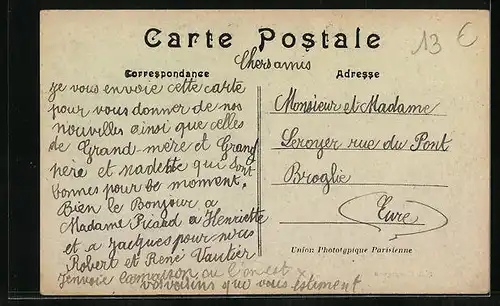 Carte Postale
13 €
Chers amis
Correspondance
Adresse
je vous envoie cette carte
pour vous donner de nos
nouvelles ainsi que celles
de Grand mère et Grand
père et nadette qui sont
bonnes pour be moment.
Bien le Bonjour a
Madame Picard a Henriette
et a Jacques pour nous
Robert et René Vautier
J'envoie la maison ou l'on est
vos voisins que vous estiment
Monsieur et Madame
Leroyer rue du Pont
Broglie
Eure
Union Phototypique Parisienne